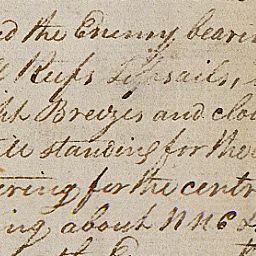 d the Enemy bearin
Reefs Topsails,
ht Breezes and clo
till standing for the
ering for the centr
ing about NN6